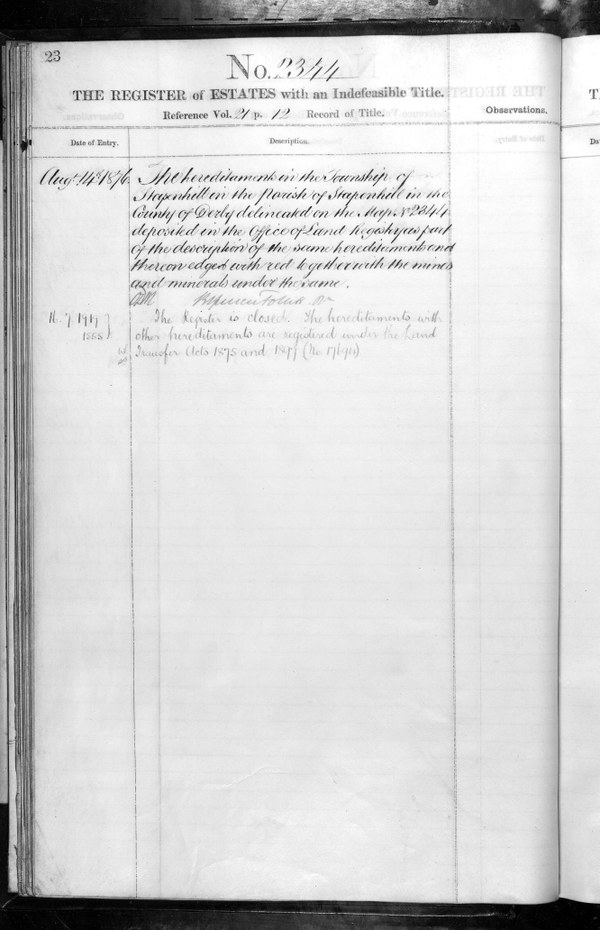 23
No. 2344
THE REGISTER of ESTATES with an Indefeasible Title.
Reference Vol. 21 p. 12 Record of Title.
Observations.
Date of Entry.
Description.
Augt. 14th 1876. The hereditaments in the Township of
Stapenhill in the Parish of Stapenhill in the
County of Derby delineated on the Map No 2344
deposited in the Office of Land Registry as part
of the description of the same hereditaments and
thereon edged with red together with the mines
and minerals under the same.
The Register is closed. The hereditaments with
other hereditaments are registered under the Land
Transfer Acts 1875 and 1897